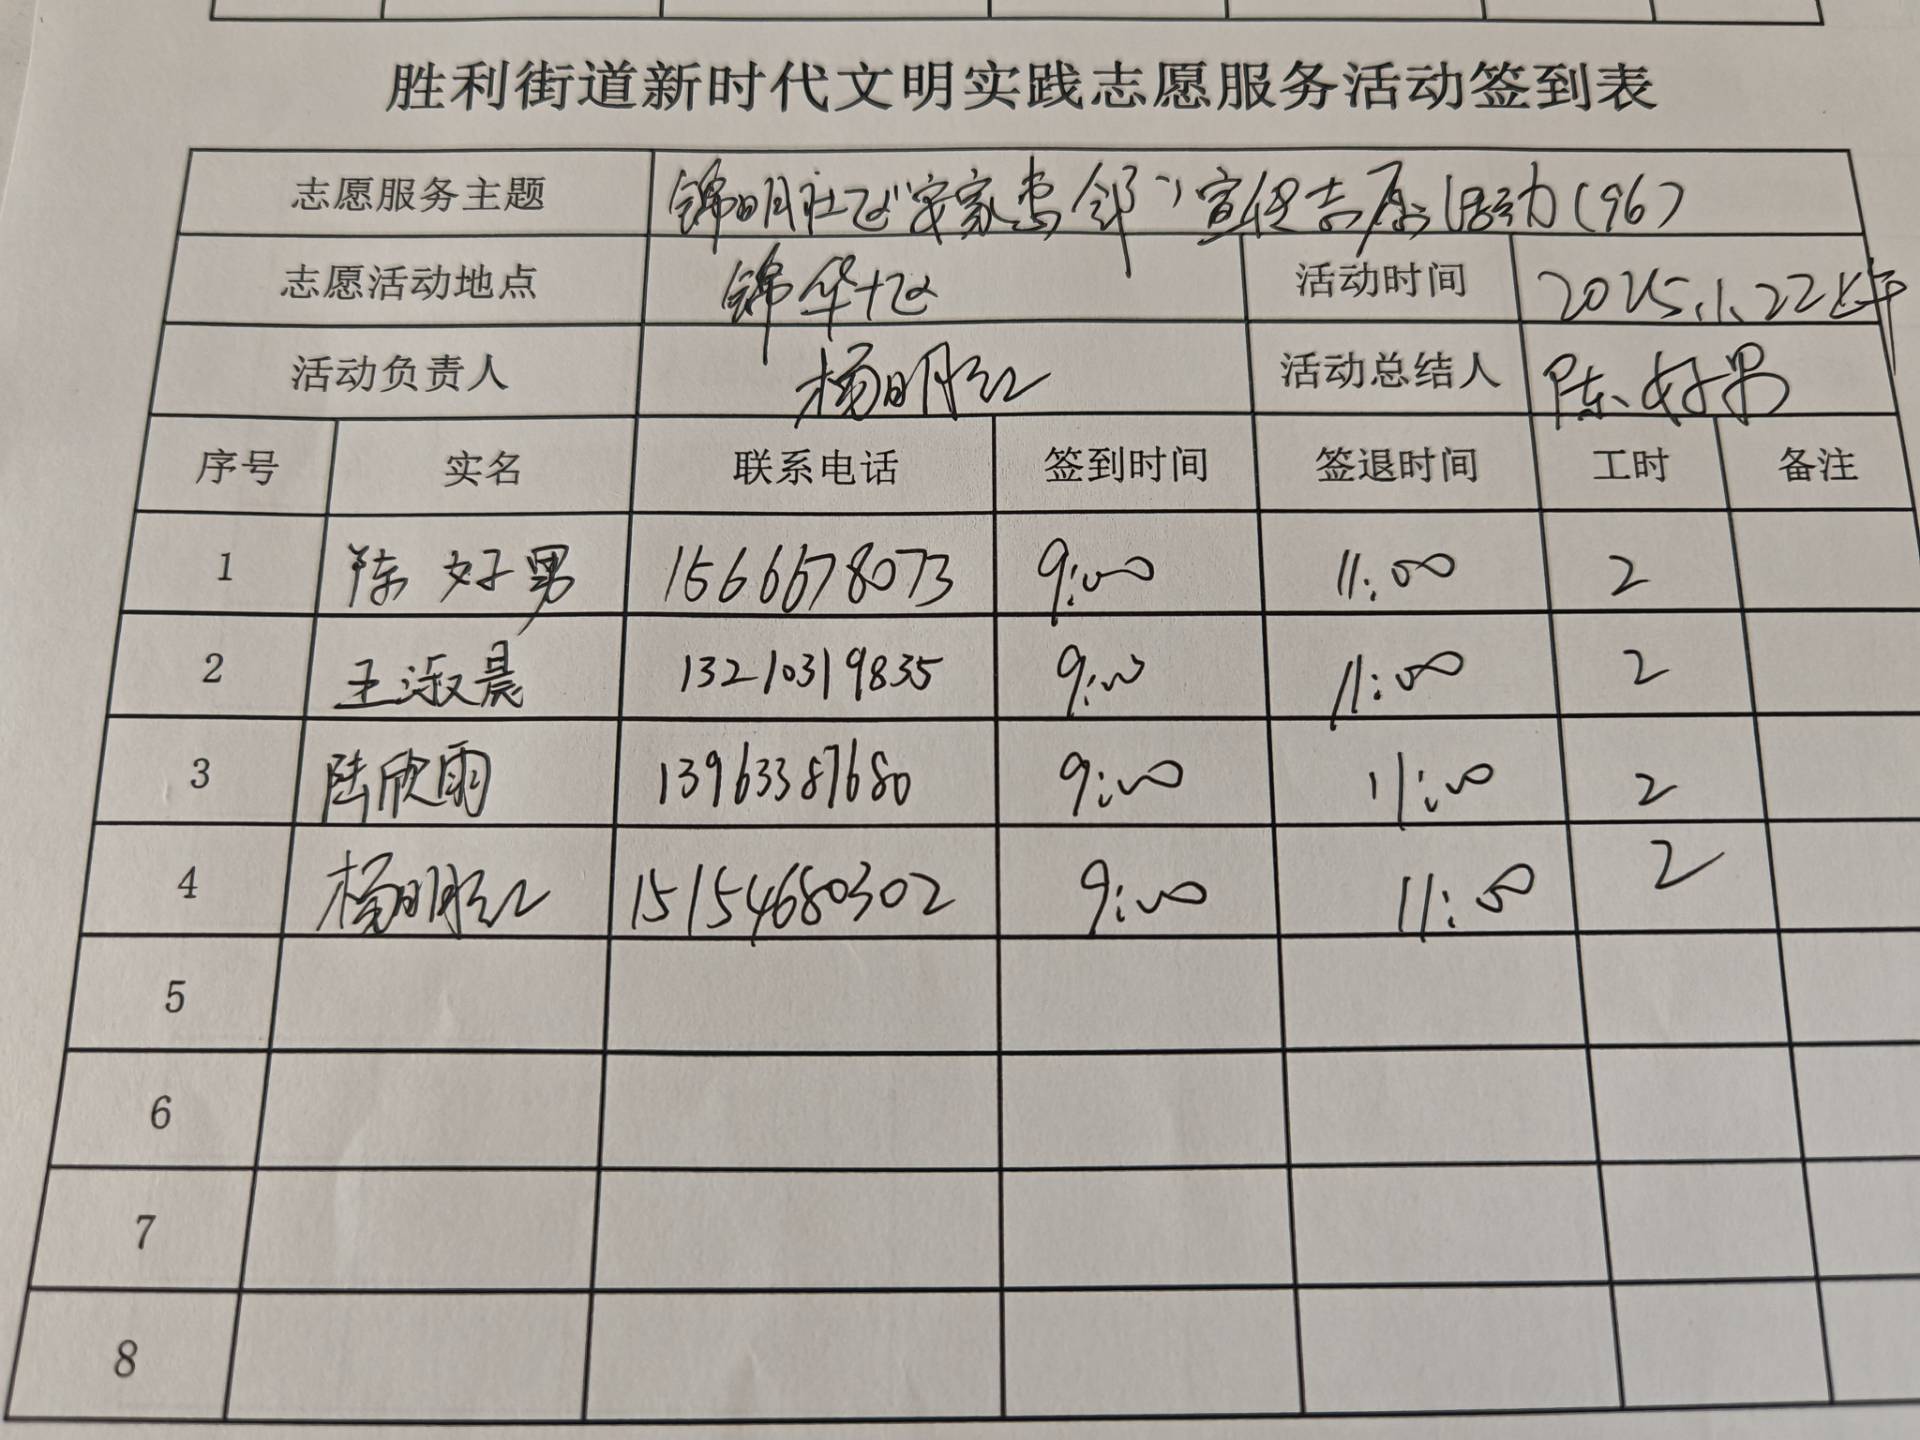 胜利街道新时代文明实践志愿服务活动签到表
志愿服务主题 锦明社区"安家志邻"宣传志愿活动(96)
志愿活动地点 锦华十区 活动时间 2025.1.22上午
活动负责人 杨明红 活动总结人 陈好男
序号 实名 联系电话 签到时间 签退时间 工时 备注
1 陈好男 15666678073 9:00 11:00 2
2 王淑晨 13210319835 9:00 11:00 2
3 陆欣雨 13963387680 9:00 11:00 2
4 杨明红 15154680302 9:00 11:00 2
5
6
7
8